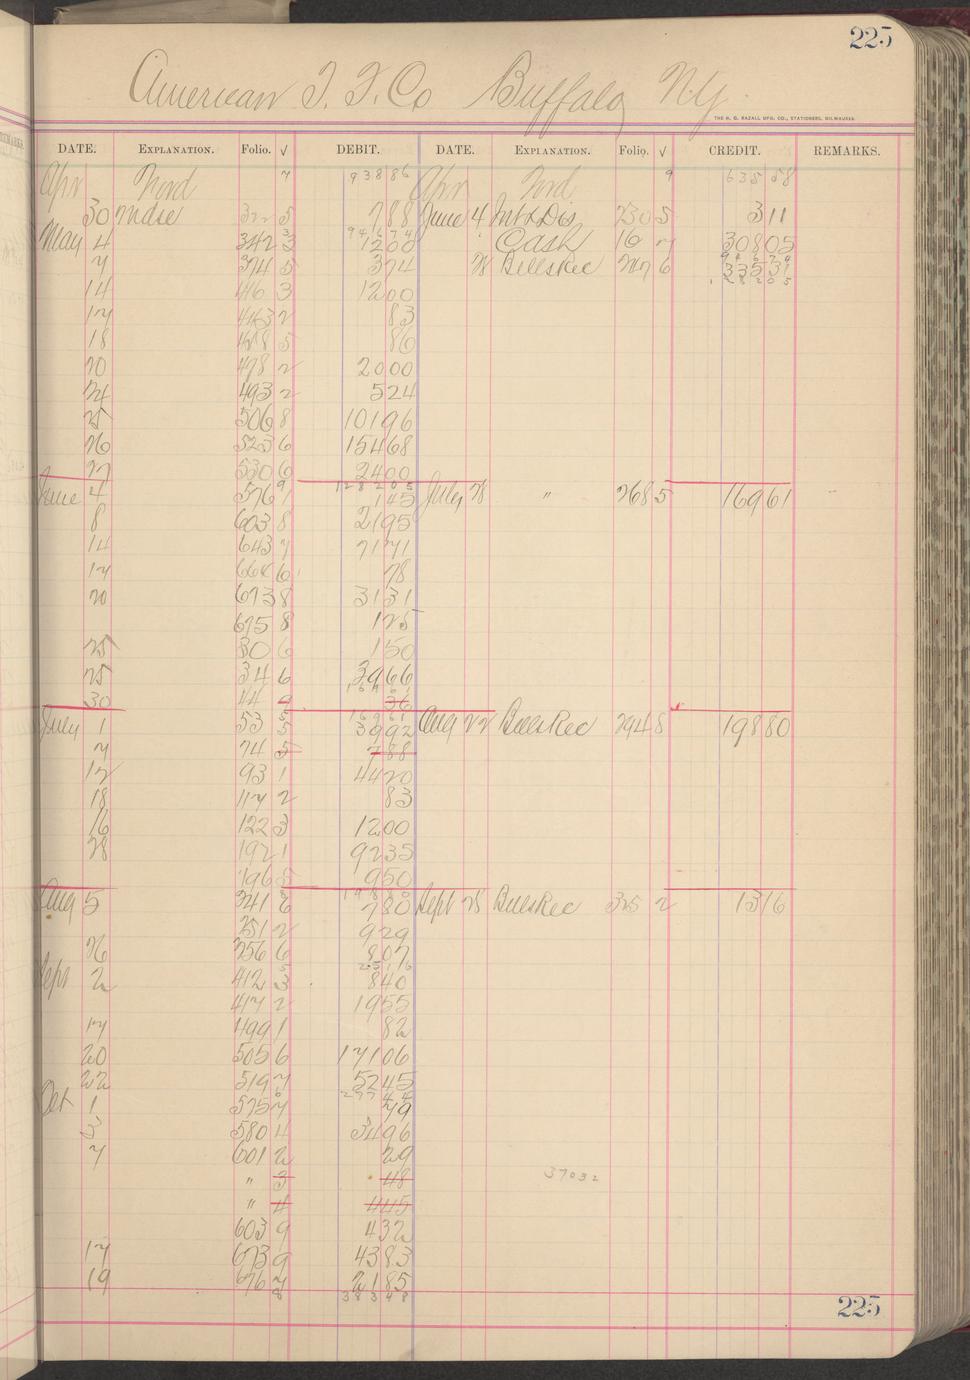 225
American T. F. Co Buffalo N.Y.
THE H. G. RAZALL MFG. CO., STATIONERS, MILWAUKEE
DATE. EXPLANATION. Folio. √ DEBIT. DATE. EXPLANATION. Folio. √ CREDIT. REMARKS.
Apr Ford 7 938 86 Apr Ford 9 635 58
30 Mdse 322 5 7 88 June 4 Int & Dis 230 5 3 11
May 4 342 3 12 00 Cash 16 7 308 05
7 374 5 3 74 28 Bills Rec 247 6 335 31
14 416 3 12 00
17 463 2 83
18 468 5 86
20 478 2 20 00
24 493 2 5 24
25 506 8 101 96
26 523 6 154 68
27 530 6 24 00
1282 05
June 4 576 1 1 45 July 28 " 268 5 169 61
8 603 8 21 95
14 643 7 71 71
17 664 6 78
20 673 8 31 31
675 8 1 25
25 30 6 1 50
25 34 6 39 66
30 44 9 36
169 61
July 1 53 5 39 92 Aug 22 Bills Rec 294 8 198 80
7 74 5 7 88
12 93 1 44 20
18 117 2 83
16 122 3 12 00
28 192 1 92 35
196 5 9 50
198 80
Aug 5 241 6 7 80 Sept 28 Bills Rec 325 2 13 16
251 2 9 29
26 256 6 8 07
25 16
Sept 2 412 3 8 40
417 2 19 55
17 499 1 82
20 505 6 171 06
22 519 7 52 45
277 44
Oct 1 575 7 79
3 580 4 34 96
7 601 2 29
" 3 48
370 32
" 4 4 45
603 9 4 32
17 673 9 43 83
19 676 7 21 85
8 383 48
225